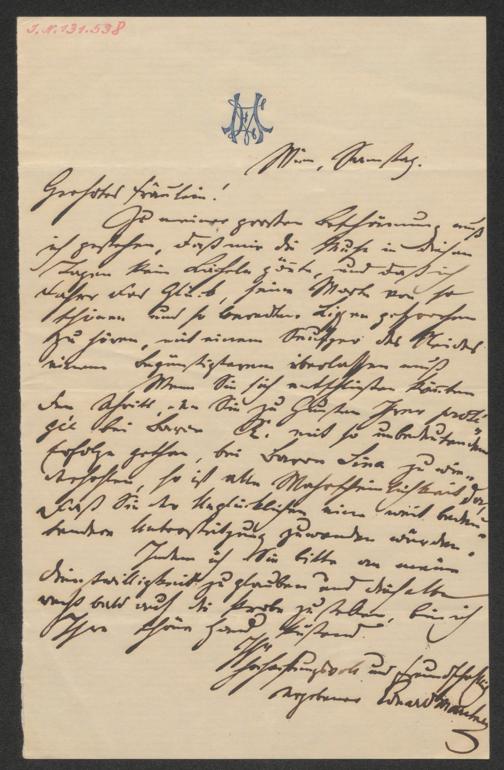 J.N. 131.538
Wien, Samstag.
Geehrtes Fräulein!
Zu meiner großen Beschämung muß
ich gestehen, daß mir die Muse in diesen
Tagen kein Lächeln gönnt, und daß ich
daher das Glück, seine Worte von so
schönen und so beredten Lippen gesprochen
zu hören, mit einem Seufzer des Neides
einem begünstigteren überlassen muß.
Wenn Sie sich entschließen könnten
den Schritt, den Sie zu Gunsten Ihrer proté-
gée bei Baron mit so unbedeutendem
Erfolge gethan, bei Baron Sina zu wie-
derholen, so ist alle Wahrscheinlichkeit da,
daß Sie der Unglücklichen eine weit bedeu-
tendere Unterstützung zuwenden würden.
Indem ich Sie bitte an meine
Dienstwilligkeit zu glauben und dieselbe
recht bald auf die Probe zu stellen, bin ich
Ihre schöne Hand küssend
Ihr
hochachtungsvoll und freundschaftlich
ergebener Eduard